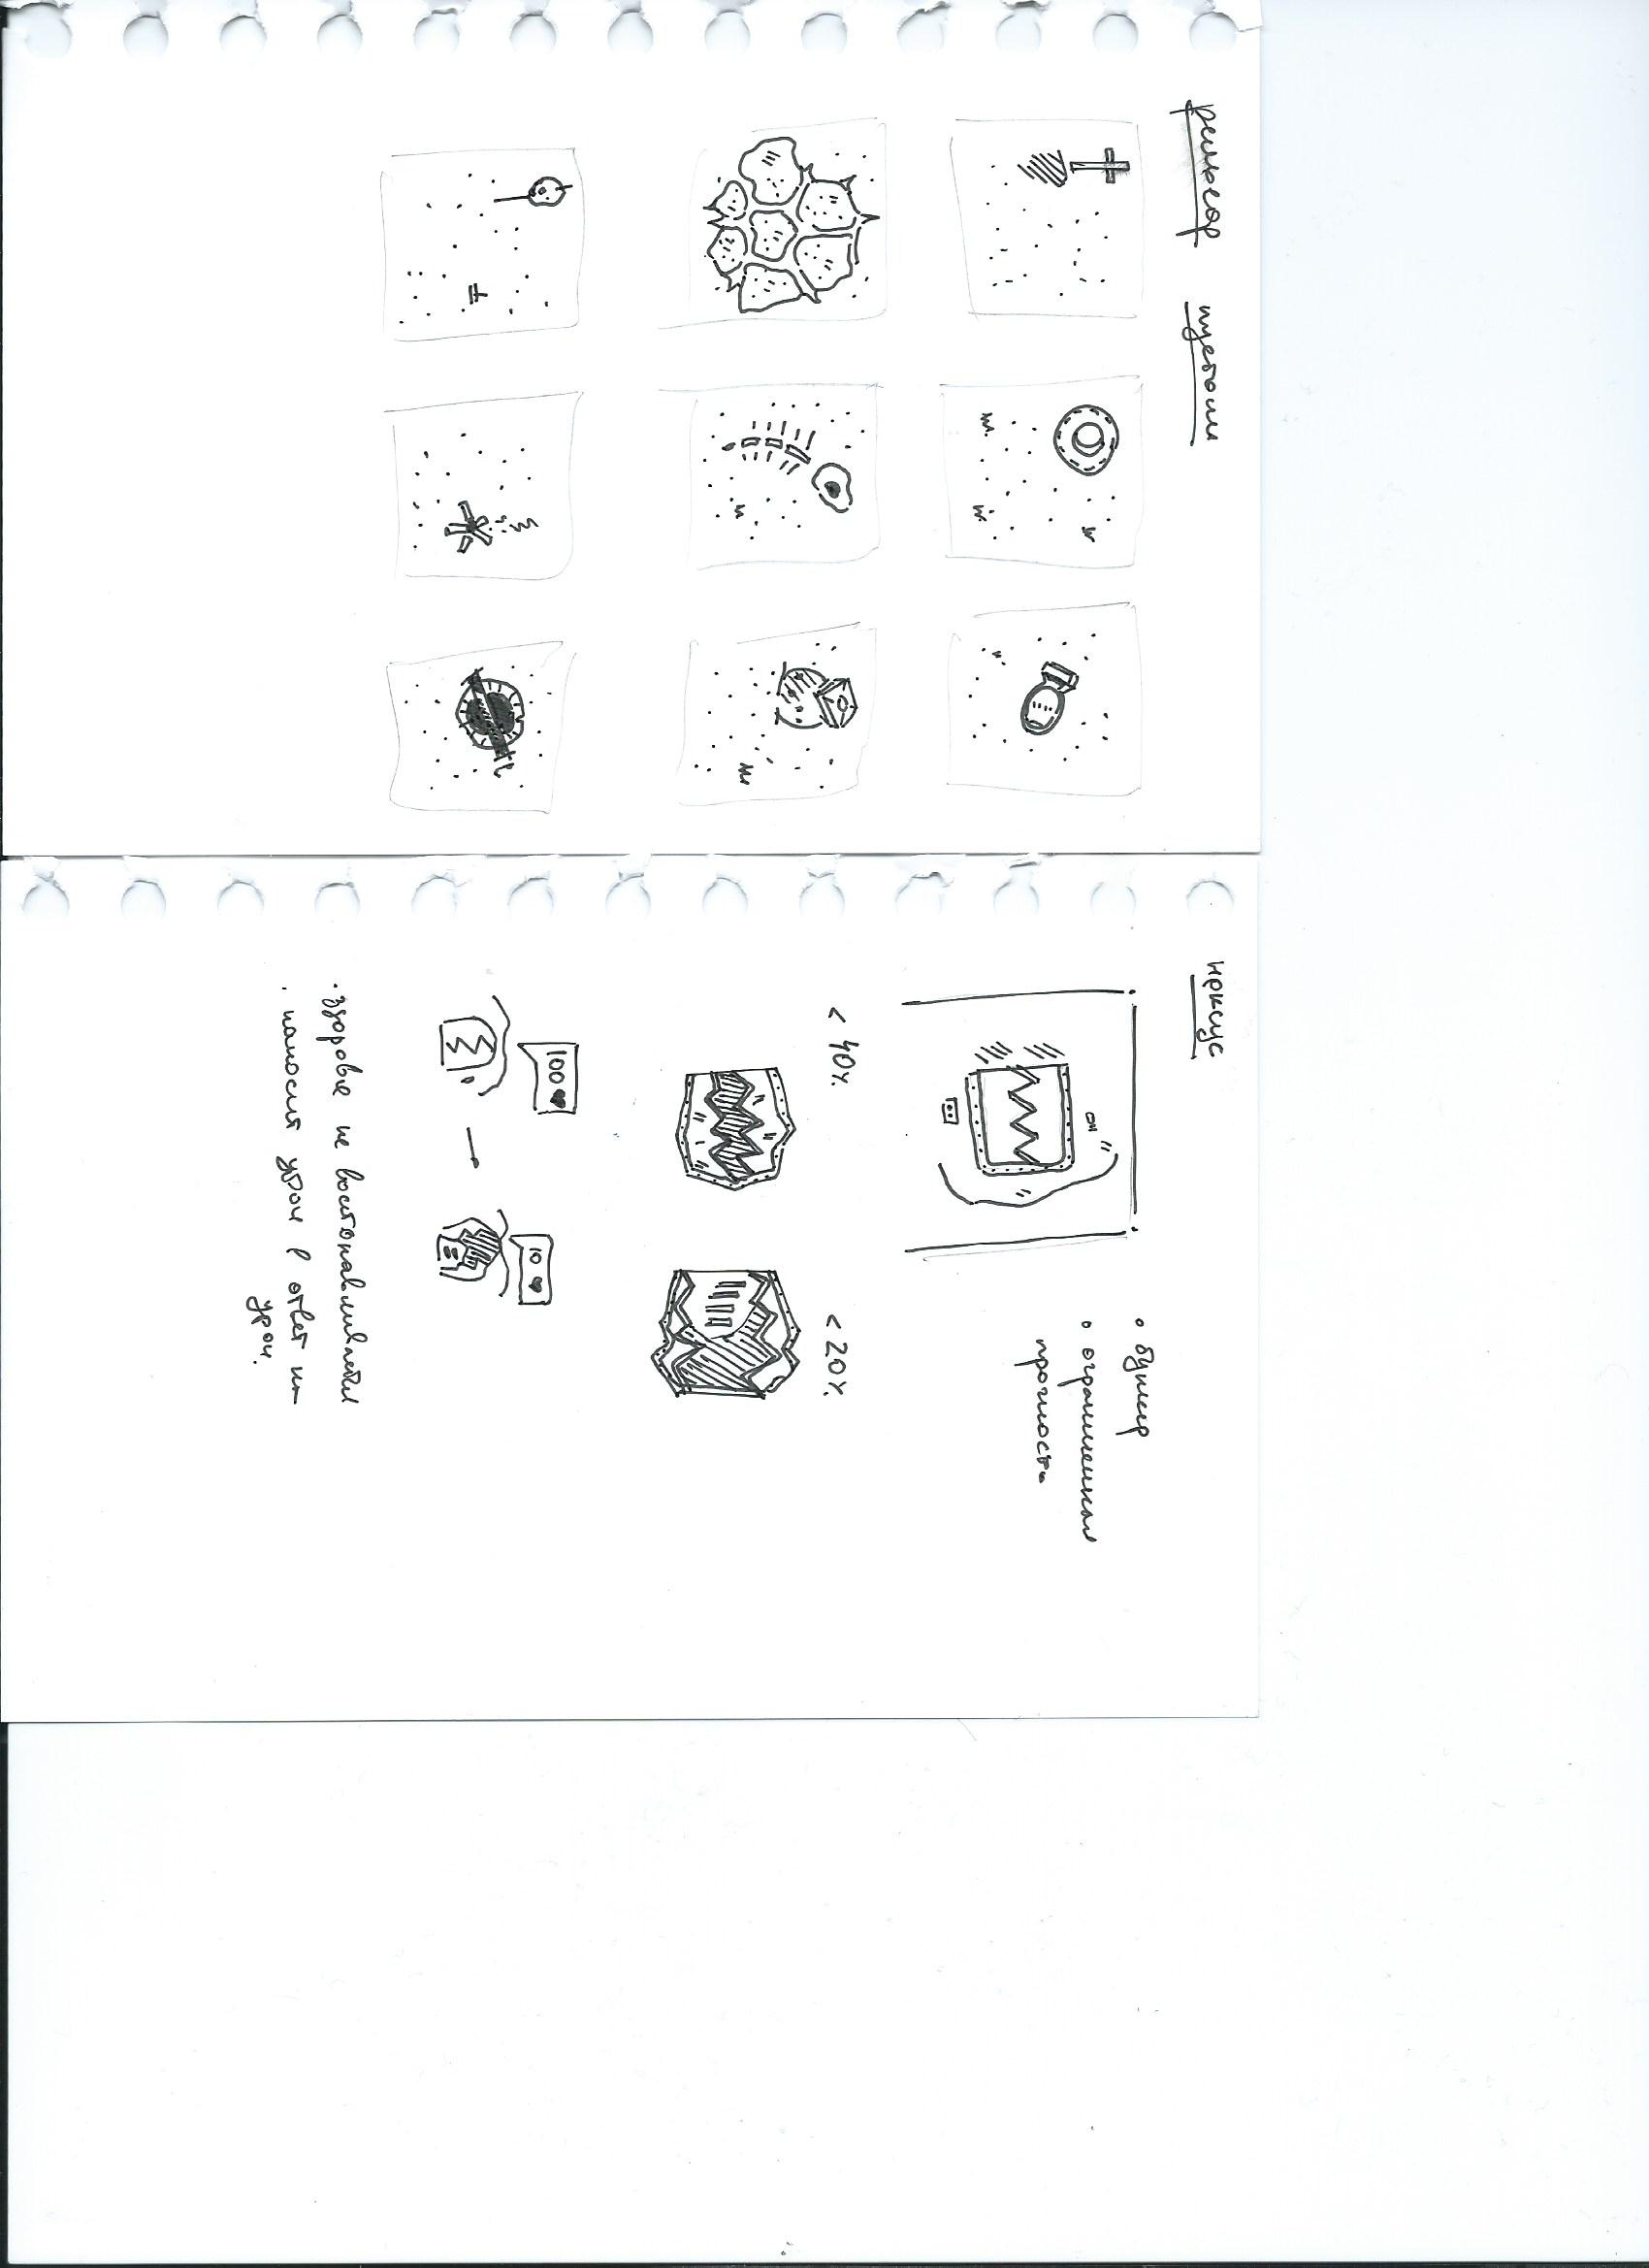 рельеф пустоши
нексус
• бункер
• ограниченная
прочность
< 40%
< 20%
100 ♥
10 ♥
· здоровье не востонавливается
· наносит урон в ответ на
урон.